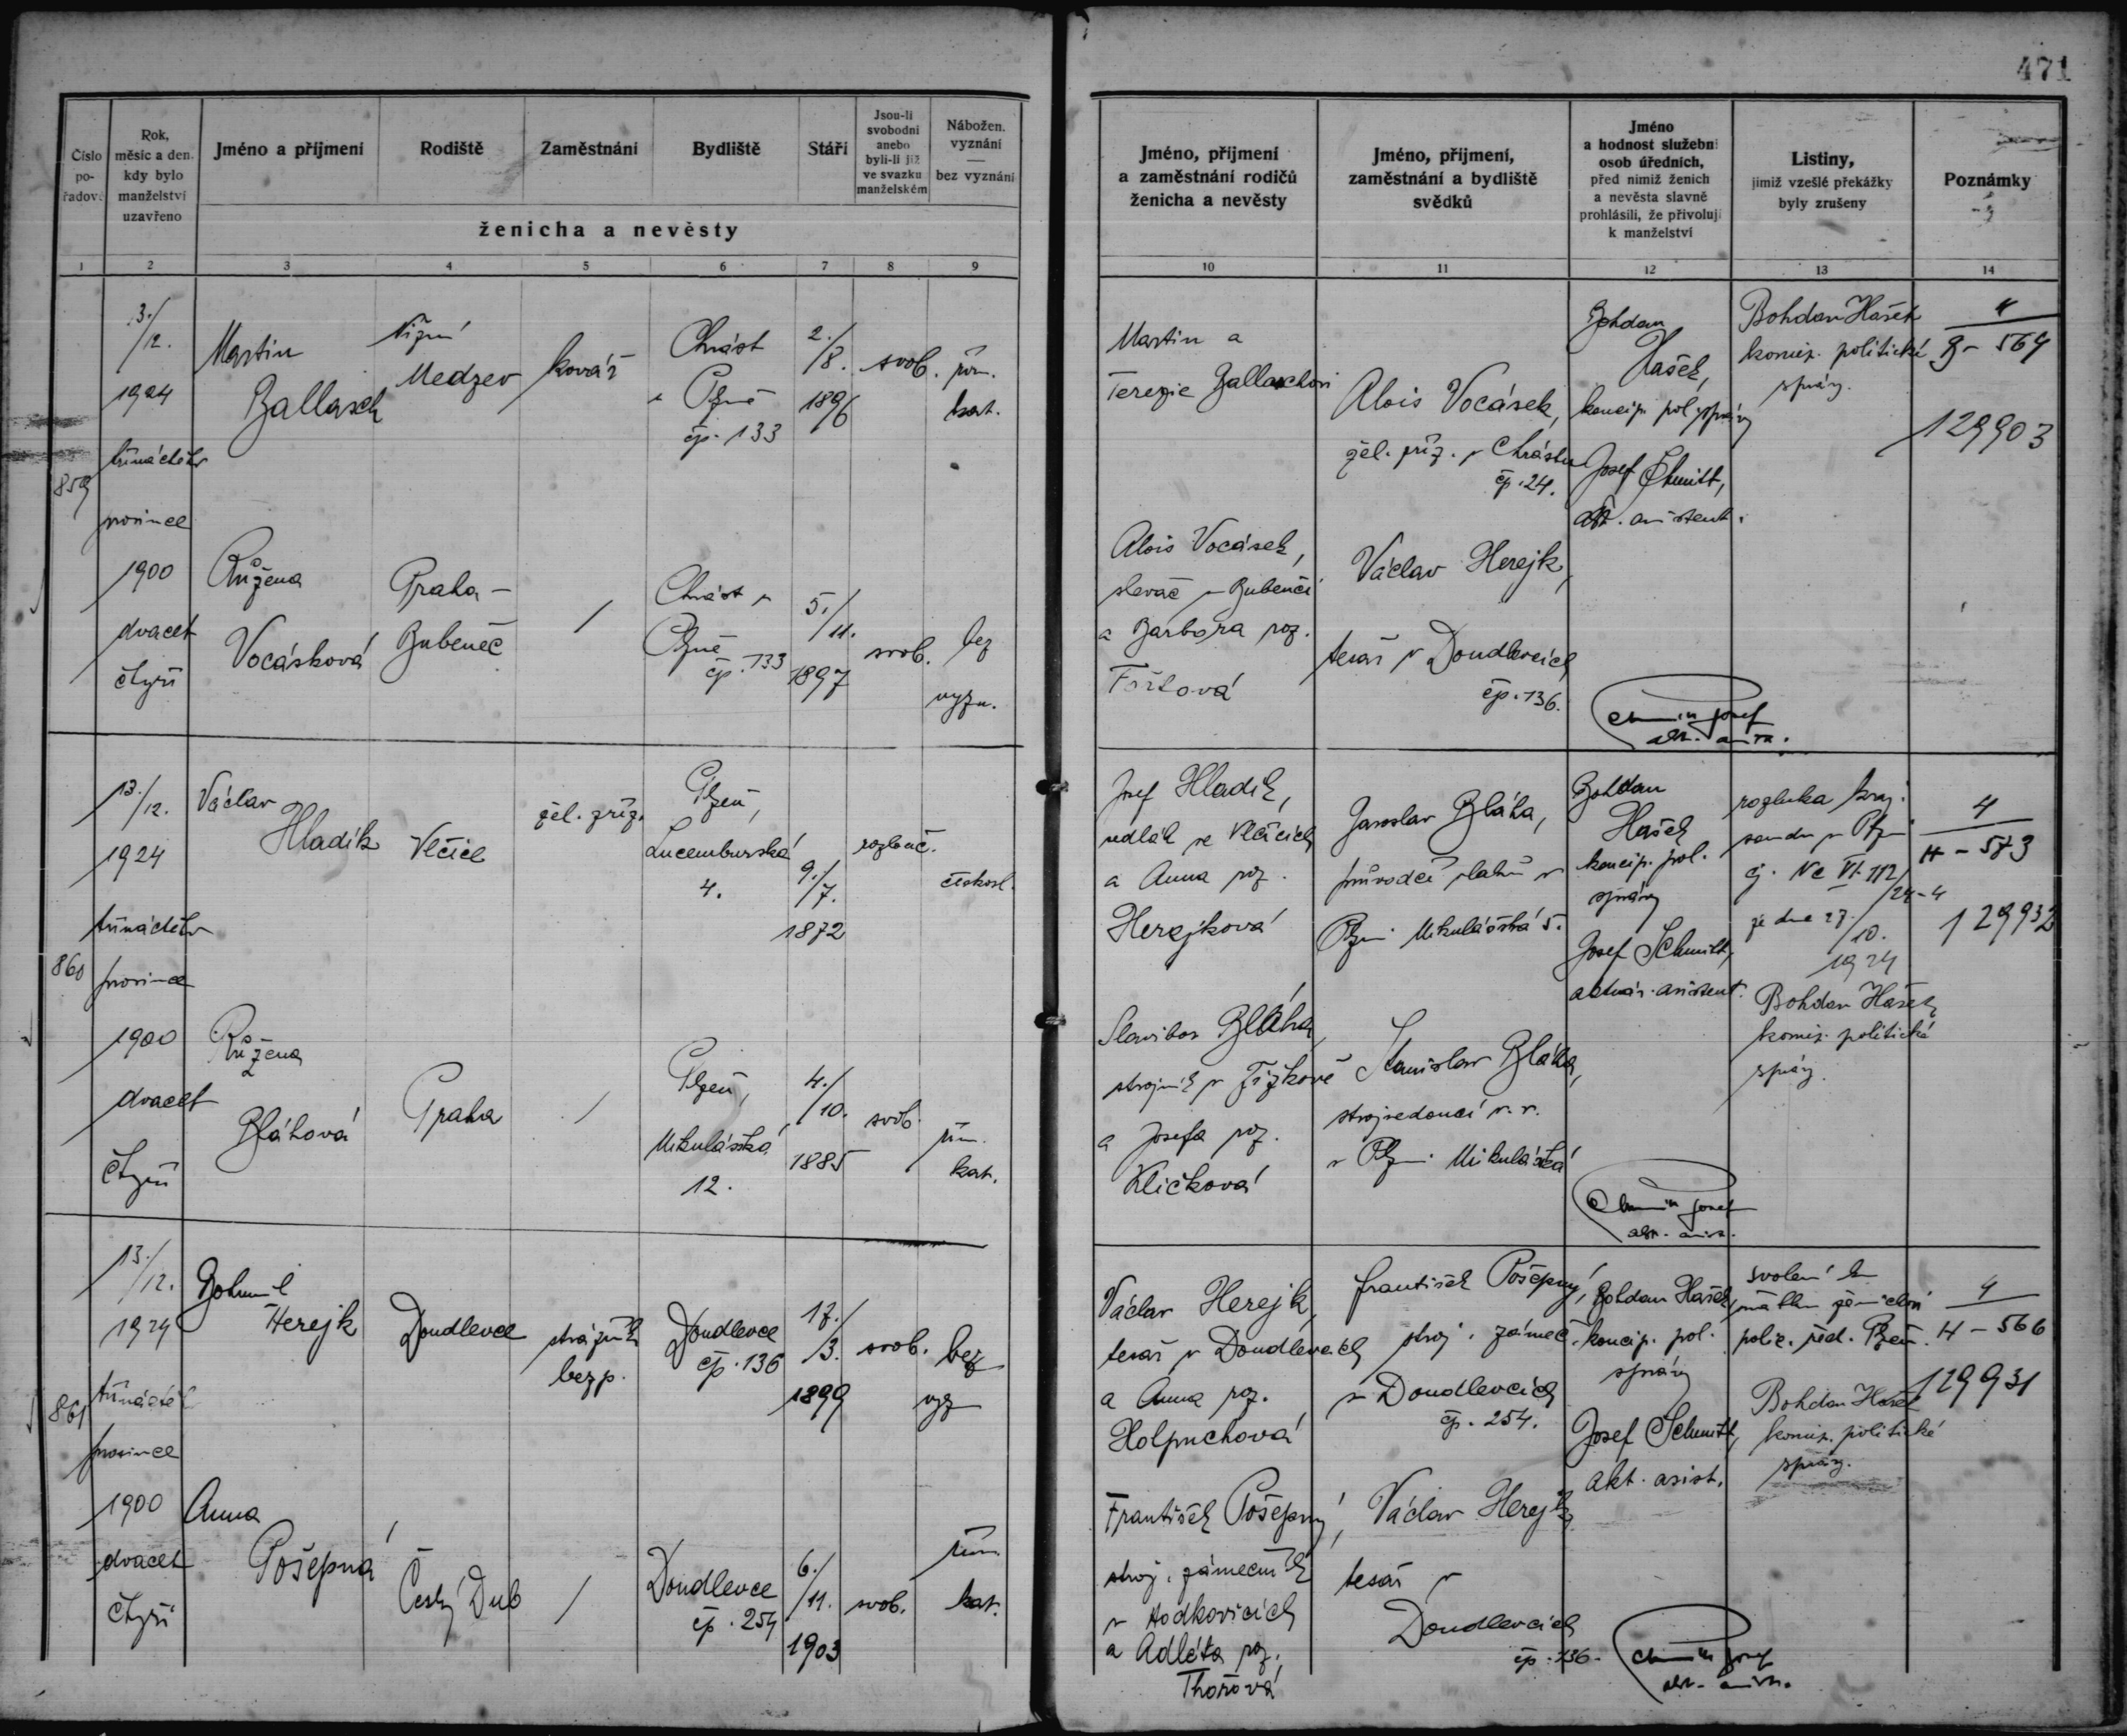 471
Číslo pořadové
Rok, měsíc a den, kdy bylo manželství uzavřeno
Jméno a příjmení
Rodiště
Zaměstnání
Bydliště
Stáří
Jsou-li svobodni anebo byli-li již ve svazku manželském
Nábožen. vyznání — bez vyznání
ženicha a nevěsty
Jméno, příjmení a zaměstnání rodičů ženicha a nevěsty
Jméno, příjmení, zaměstnání a bydliště svědků
Jméno a hodnost služební osob úředních, před nimiž ženich a nevěsta slavně prohlásili, že přivolují k manželství
Listiny, jimiž vzešlé překážky byly zrušeny
Poznámky
1 2 3 4 5 6 7 8 9 10 11 12 13 14
859
13./12.
1924
třináctého
prosince
1900
dvacet
čtyři
Martin
Ballasch
Nižní
Medzev
kovář
Chrást
u Plzně
čp. 133
2./8.
1896
svob.
řím.
kat.
Martin a
Terezie Ballaschovi
Alois Vocásek,
žel. zříz. v Chrástu
čp. 24.
Bohdan
Hašek,
koncip. pol. správy
Josef Schmitt,
akt. asistent.
Bohdan Hašek
komis. politické
správy.
4
B - 564
129903
Růžena
Vocásková
Praha -
Bubeneč
/
Chrást u
Plzně
čp. 133
5./11.
1897
svob.
bez
vyzn.
Alois Vocásek,
slevač v Bubenči
a Barbora roz.
Fořtová
Václav Herejk,
tesař v Doudlevcích
čp. 136.
860
13./12.
1924
třináctého
prosince
1900
dvacet
čtyři
Václav
Hladík
Vlčice
žel. zříz.
Plzeň,
Lucemburská
4.
9./7.
1872
rozlouč.
českosl.
Josef Hladík,
sedlák ve Vlčicích
a Anna roz.
Herejková
Jaroslav Bláha,
průvodčí vlaků v
Plzni Mikulášská 5.
Bohdan
Hašek
koncip. pol.
správy
Josef Schmitt,
aktuár. asistent.
rozluka kraj.
soudu v Plzni
čj. Nc VI. 112/24-4
ze dne 27./10.
1924
Bohdan Hašek
komis. politické
správy.
4
H - 573
129932
Růžena
Bláhová
Praha
/
Plzeň,
Mikulášská
12.
4./10.
1885
svob.
řím.
kat.
Slavibor Bláha,
strojník v Žižkově
a Josefa roz.
Kličková
Stanislav Bláha,
strojvedoucí v. v.
v Plzni Mikulášská
861
13./12.
1924
třináctého
prosince
1900
dvacet
čtyři
Bohumil
Herejk
Doudlevce
strážník
bezp.
Doudlevce
čp. 136
17./3.
1899
svob.
bez
vyz
Václav Herejk,
tesař v Doudlevcích
a Anna roz.
Holpuchová
František Pošepný,
stroj. zámeč.
v Doudlevcích
čp. 254.
Bohdan Hašek,
koncip. pol.
správy
Josef Schmitt,
akt. asist.
svolení k
poliz. řed. Plzeň.
Bohdan Hašek
komis. politické
správy.
4
H - 566
129931
Anna
Pošepná
Český Dub
/
Doudlevce
čp. 254
6./11.
1903
svob.
řím.
kat.
František Pošepný,
stroj. zámečník
v Hodkovicích
a Adléta roz.
Thořová
Václav Herejk,
tesař v
Doudlevcích
čp. 136.